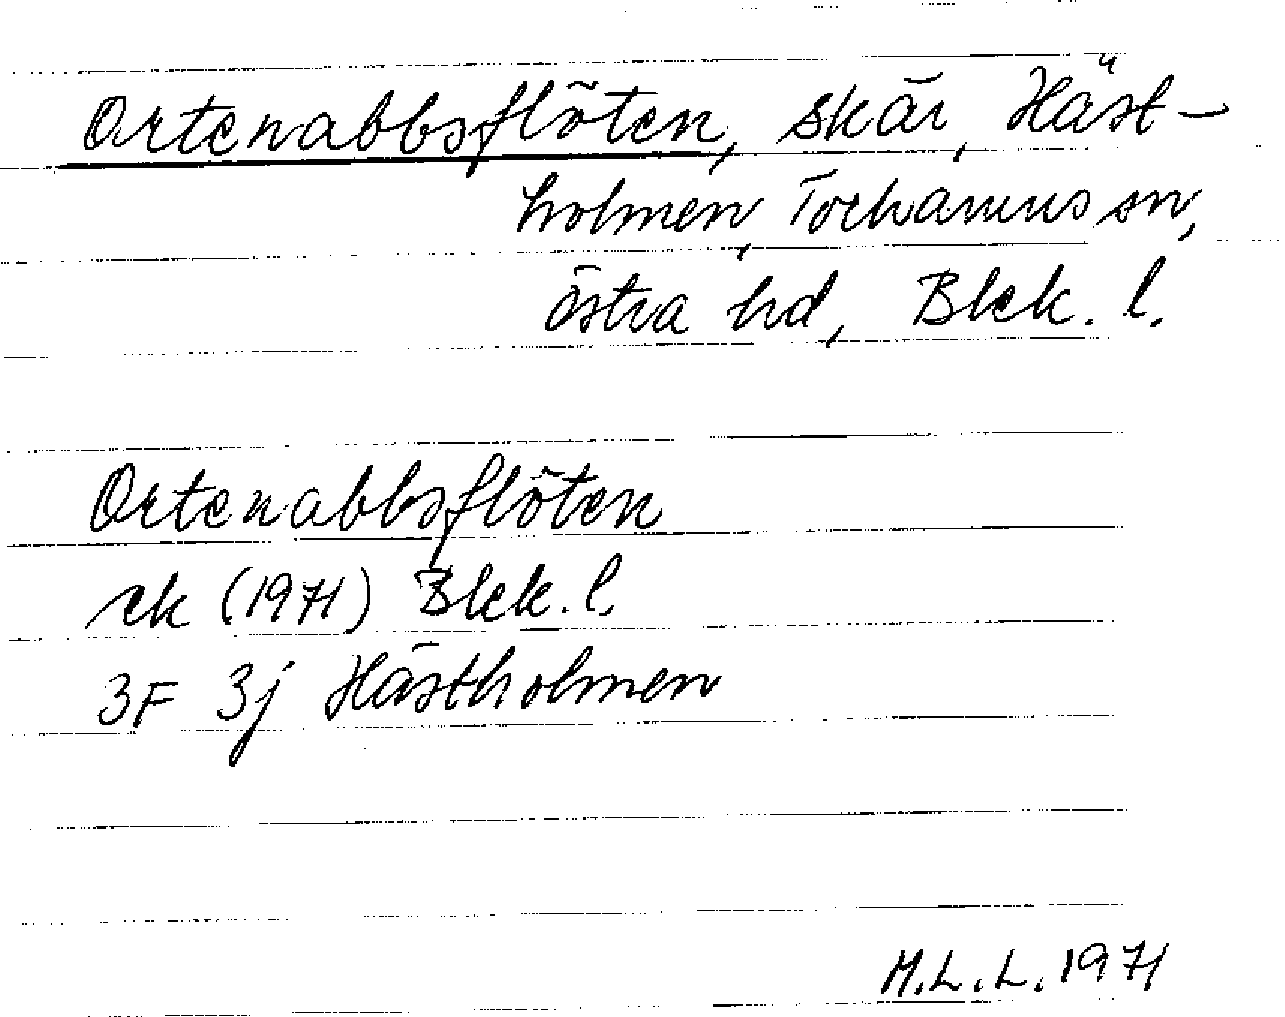 Ortenabbsflöten, skär, Häst-
holmen, Torhamns sn,
östra hd, Blek. l.
Ortenabbsflöten
ek (1971) Blek. l.
3F 3j Hästholmen
M.L.L. 1971